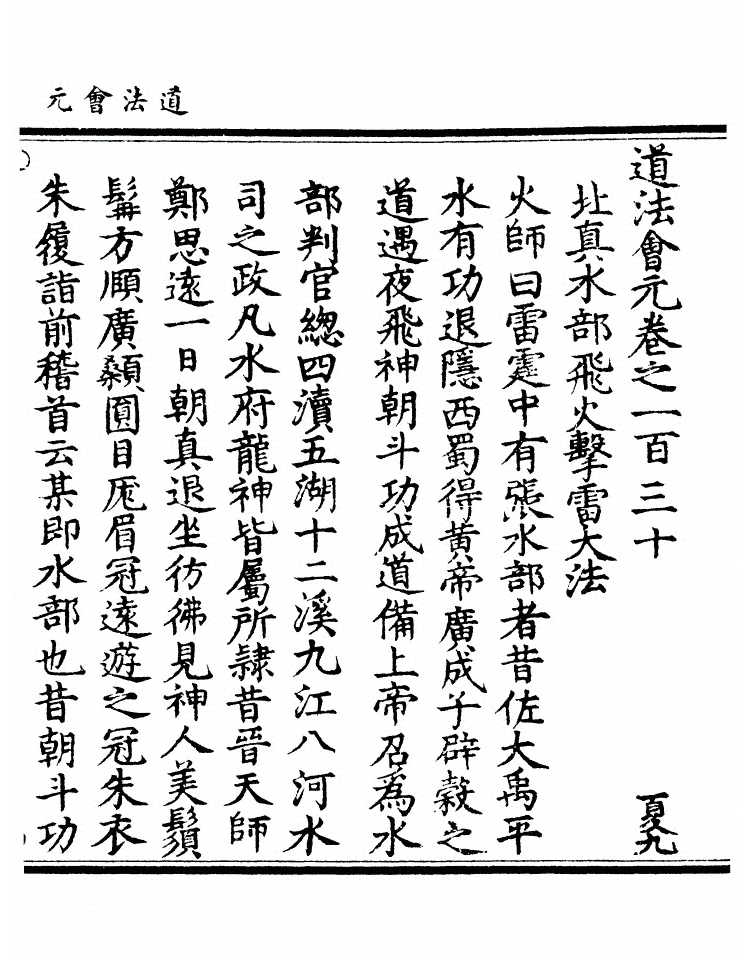 道法會元
道法會元卷之一百三十 夏九
北真水部飛火擊雷大法
火師曰雷霆中有張水部者昔佐大禹平
水有功退隱西蜀得黃帝廣成子辟穀之
道遇夜飛神朝斗功成道備上帝召為水
部判官總四瀆五湖十二溪九江八河水
司之政凡水府龍神皆屬所隸昔晉天師
鄭思遠一日朝真退坐彷彿見神人美鬚
髯方頤廣顙圓目厖眉冠遠遊之冠朱衣
朱履詣前稽首云某即水部也昔朝斗功